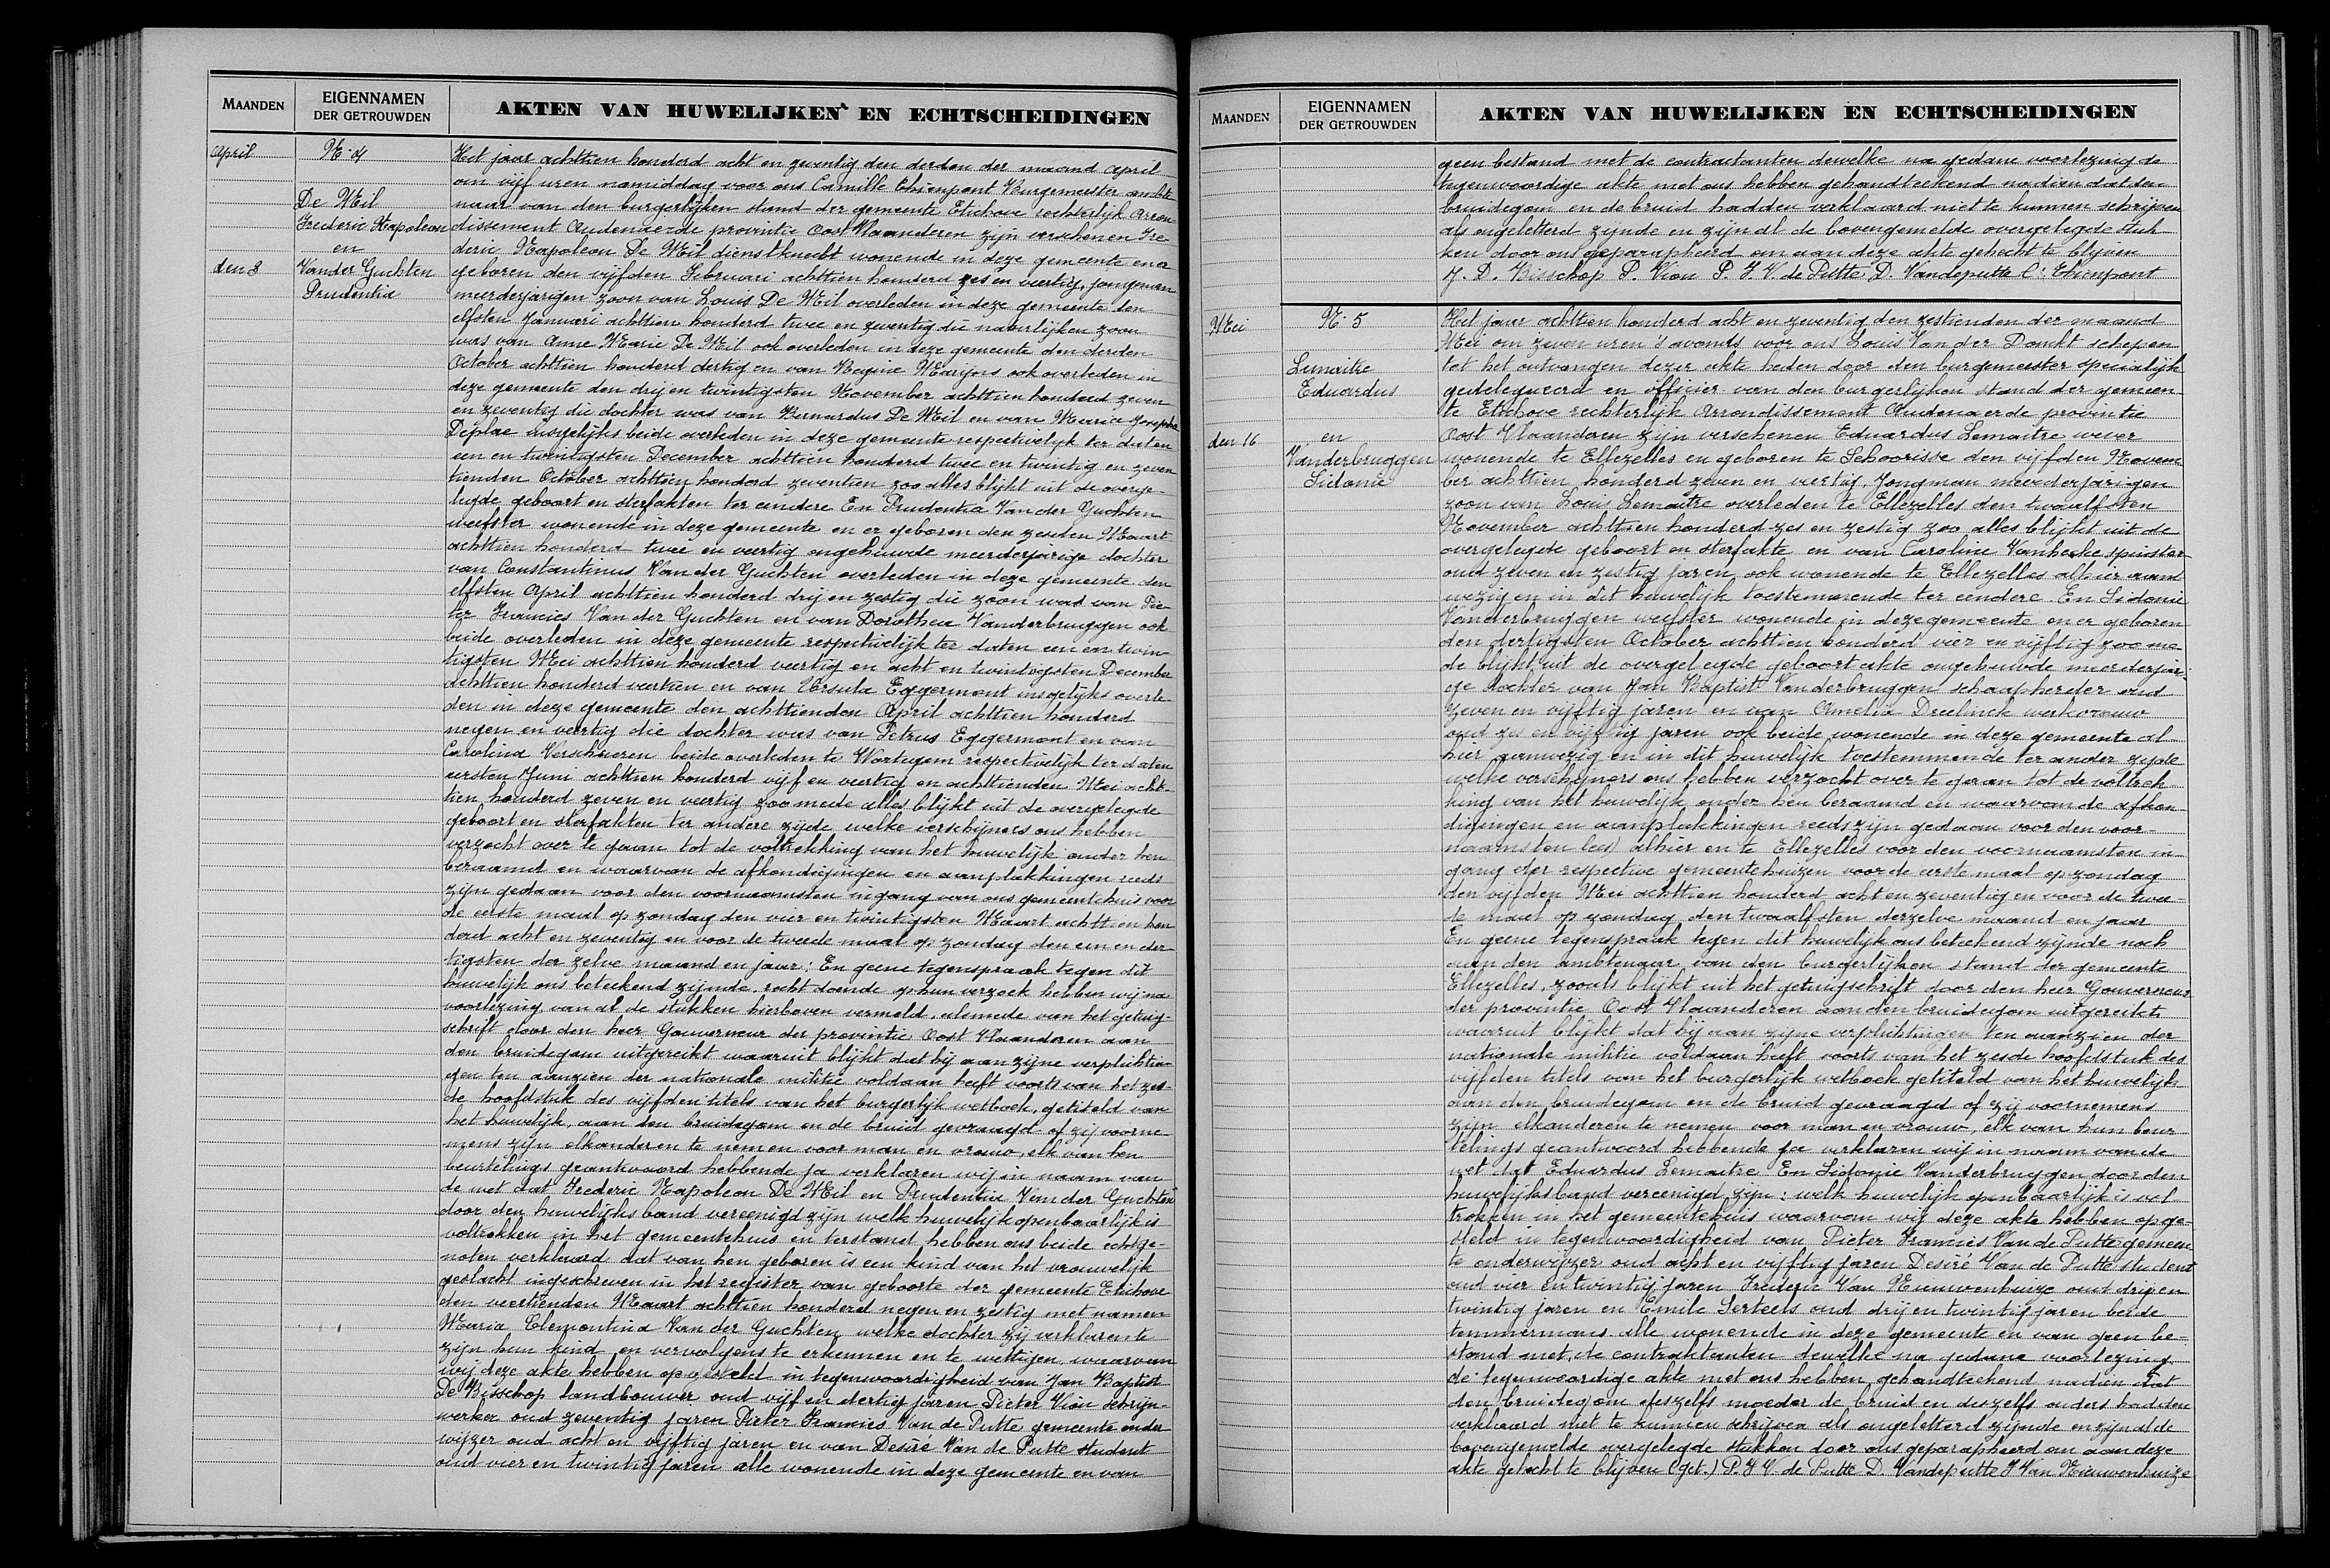 MAANDEN
EIGENNAMEN
DER GETROUWDEN
AKTEN VAN HUWELIJKEN EN ECHTSCHEIDINGEN
April
No 4
De Meil
Frederic Napoleon
en
den 3
Vander Guchten
Prudentia
Het jaar achttien honderd acht en zeventig den derden der maand April
om vijf uren namiddag voor ons Camille Thienpont Burgemeester ambte
naar van den burgerlijken stand der gemeente Etichove rechterlijk arron
dissement Audenaerde provintie Oost Vlaanderen zijn verschenen Fre-
deric Napoleon De Meil dienstknecht wonende in deze gemeente en er
geboren den vijfden Februari achttien honderd zes en veertig, jongman
meerderjarigen zoon van Louis De Meil overleden in deze gemeente den
elfsten Januari achttien honderd twee en zeventig die natuurlijken zoon
was van Anne Marie De Meil ook overleden in deze gemeente den derden
October achttien honderd dertig en van Regine Marijns ook overleden in
deze gemeente den drij en twintigsten November achttien honderd zeven
en zeventig die dochter was van Bernardus De Meil en van Marica Josepha
Deplae insgelijks beide overleden in deze gemeente respectivelijk ter daten
een en twintigsten December achttien honderd twee en twintig en zeven
tienden October achttien honderd zeventien zoo alles blijkt uit de overge-
legde geboort en sterfakten ter eendere En Prudentia Van der Guchten
weefster wonende in deze gemeente en er geboren den zesden Maart
achttien honderd twee en veertig ongehuwde meerderjarige dochter
van Constantinus Van der Guchten overleden in deze gemeente den
elfsten April achttien honderd drij en zestig die zoon was van Pie-
ter Francies Van der Guchten en van Dorothea Vanderbruggen ook
beide overleden in deze gemeente respectivelijk ter daten een en twin
tigsten Mei achttien honderd veertig en acht en twintigsten December
achttien honderd veertien en van Ursula Eggermont insgelijks overle
den in deze gemeente den achttienden April achttien honderd
negen en veertig die dochter was van Petrus Eggermont en van
Carolina Verscheuren beide overleden te Wortegem respectivelijk ter daten
eersten Juni achttien honderd vijf en veertig en achttienden Mei acht-
tien honderd zeven en veertig zoo mede alles blijkt uit de overgelegde
geboort en sterfakten ter andere zijde welke verschijners ons hebben
verzocht over te gaan tot de voltrekking van het huwelijk onder hen
beraamd en waarvan de afkondigingen en aanplakkingen reeds
zijn gedaan voor den voornaamsten ingang van ons gemeentehuis voor
de eerste maal op zondag den vier en twintigsten Maart achttien hon
derd acht en zeventig en voor de tweede maal op zondag den een en der
tigsten der zelve maand en jaar: En geene tegenspraak tegen dit
huwelijk ons beteekend zijnde, recht doende op hun verzoek hebben wij na
voorlezing van al de stukken hierboven vermeld, alsmede van het getuig-
schrift door den heer Gouverneur der provintie Oost Vlaanderen aan
den bruidegom uitgereikt waaruit blijkt dat hij aan zijne verplichtin-
gen ten aanzien der nationale militie voldaan heeft voorts van het zes-
de hoofdstuk des vijfden titels van het burgerlijk wetboek, getiteld van
het huwelijk, aan den bruidegom en de bruid gevraagd of zij voorne-
mens zijn elkanderen te nemen voor man en vrouw, elk van hen
beurtelings geantwoord hebbende ja verklaren wij in naam van
de wet dat Frederic Napoleon De Meil en Prudentia Van der Guchten
door den huwelijksband vereenigd zijn welk huwelijk openbaarlijk is
voltrokken in het gemeentehuis en terstand hebben ons beide echtge-
noten verklaard dat van hen geboren is een kind van het vrouwelijk
geslacht ingeschreven in het register van geboorte der gemeente Etichove
den veertienden Maart achttien honderd negen en zestig met namen
Maria Clementina Van der Guchten welke dochter zij verklarente
zijn hun kind en vervolgens te erkennen en te wettigen waarvan
wij deze akte hebben opgesteld in tegenwoordigheid van Jan Baptist
De Bisschop landbouwer oud vijf en dertig jaren Pieter Vion schrijn-
werker oud zeventig jaren Pieter Francies Van de Putte gemeente onder
wijzer oud acht en vijftig jaren en van Desire Van de Putte student
oud vier en twintig jaren alle wonende in deze gemeente en van
MAANDEN
EIGENNAMEN
DER GETROUWDEN
AKTEN VAN HUWELIJKEN EN ECHTSCHEIDINGEN
geen bestand met de contractanten dewelke na gedane voorlezing de
tegenwoordige akte met ons hebben gehandteekend nadien dat den
bruidegom en de bruid hadden verklaard niet te kunnen schrijven
als ongeletterd zijnde en zijn al de bovengemelde overgelegde stuk
ken door ons geparapheerd om aan deze akte gehecht te blijven
J. D. Bisschop P. Vion P. F. V. de Putte D. Vandeputte C. Thienpont
Mei
No 5
Lemaitre
Eduardus
den 16
en
Vanderbruggen
Sidonie
Het jaar achttien honderd acht en zeventig den zestienden der maand
Mei om zeven uren 's avonds voor ons Louis Van der Donckt schepen
tot het ontvangen dezer akte heden door den burgemeester specialijk
gedelegueerd en officier van den burgerlijken stand der gemeen
te Etichove rechterlijk Arrondissement Audenaerde provintie
Oost Vlaanderen zijn verschenen Eduardus Lemaitre wever
wonende te Ellezelles en geboren te Schoorisse den vijfden Novem
ber achttien honderd zeven en veertig, Jongman meerderjarigen
zoon van Louis Lemaitre overleden te Ellezelles den twaalfsten
November achttien honderd zes en zestig zoo alles blijkt uit de
overgelegde geboort en sterfakte en van Caroline Vanheske spinster
oud zeven en zestig jaren ook wonende te Ellezelles alhier aan
wezig en in dit huwelijk toestemmende ter eendere. En Sidonie
Vanderbruggen weefster wonende in deze gemeente en er geboren
den dertigsten October achttien honderd vier en vijftig zoo me
de blijkt uit de overgelegde geboort akte ongehuwde meerderjari-
ge dochter van Jan Baptist Vanderbruggen schaapherder oud
zeven en vijftig jaren en van Amelia Dreelinck werkvrouw
oud zes en vijftig jaren ook beide wonende in deze gemeente al
hier aanwezig en in dit huwelijk toestemmende ter ander zijde
welke verschijners ons hebben verzocht over te gaan tot de voltrek-
king van het huwelijk onder hen beraamd en waarvan de afkon
digingen en aanplakkingen reeds zijn gedaan voor den voor-
naamsten alhier en te Ellezelles voor den voornaamsten in
gang der respective gemeentehuizen voor de eerste maal op zondag
den vijfden Mei achttien honderd acht en zeventig en voor de twee-
de maal op zondag den twaalfsten derzelve maand en jaar
En geene tegenspraak tegen dit huwelijk ons beteekend zijnde noch
aan den ambtenaar van den burgerlijken stand der gemeente
Ellezelles, zooals blijkt uit het getuigschrift door den heer Gouverneur
der provintie Oost Vlaanderen aan den bruidegom uitgereikt
waaruit blijkt dat hij aan zijne verplichtingen ten aanzien der
nationale militie voldaan heeft voorts van het zesde hoofdstuk des
vijfden titels van het burgerlijk wetboek getiteld van het huwelijk
aan den bruidegom en de bruid gevraagd of zij voornemens
zijn elkanderen te nemen voor man en vrouw, elk van hun beur
telings geantwoord hebbende ja verklaren wij in naam van de
wet dat Eduardus Lemaitre En Sidonie Vanderbruggen door den
huwelijksband vereenigd zijn: welk huwelijk openbaarlijk is vol
trokken in het gemeentehuis waarvan wij deze akte hebben opge-
steld in tegenwoordigheid van Pieter Francies Van de Putte gemeen
te onderwijzer oud acht en vijftig jaren Desiré Van de Putte student
oud vier en twintig jaren Frederic Van Nieuwenhuize oud drij en
twintig jaren en Emile Serteels oud drij en twintig jaren beide
temmermans alle wonende in deze gemeente en van geen be-
stand met de contraktanten dewelke na gedane voorlezing
de tegenwoordige akte met ons hebben gehandteekend nadien dat
den bruidegom deszelfs moeder de bruid en deszelfs ouders hadden
verklaard niet te kunnen schrijven als ongeletterd zijnde en zijn al de
bovengemelde overgelegde stukken door ons geparapheerd om aan deze
akte gehecht te blijven (get.) P. F. V. de Putte D. Vandeputte F Van Nieuwenhuize